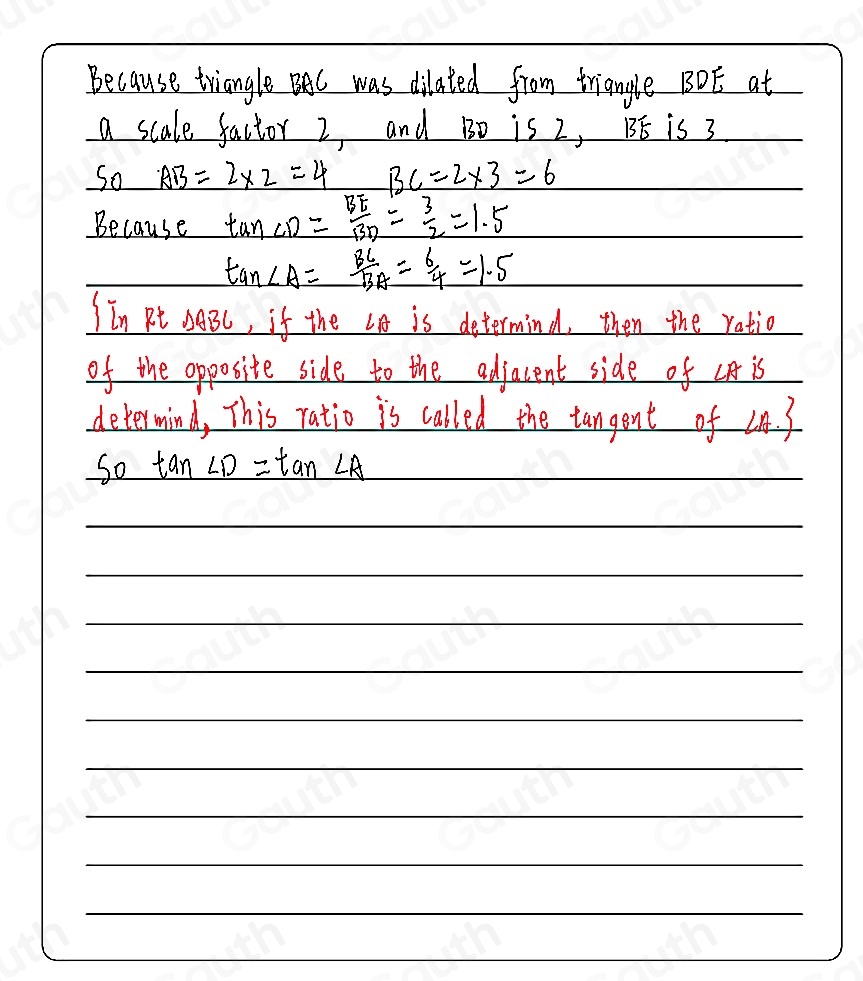 Because triangle BAC was dilated from triangle BDE at
a scale factor 2, and BD is 2, BE is 3.
So AB = 2×2 = 4 BC = 2×3 = 6
Because tan∠D = BE/BD = 3/2 = 1.5
tan∠A = BC/BA = 6/4 = 1.5
{In Rt △ABC, if the ∠A is determind, then the ratio
of the opposite side to the adjacent side of ∠A is
determind, This ratio is called the tangent of ∠A.}
So tan ∠D = tan ∠A